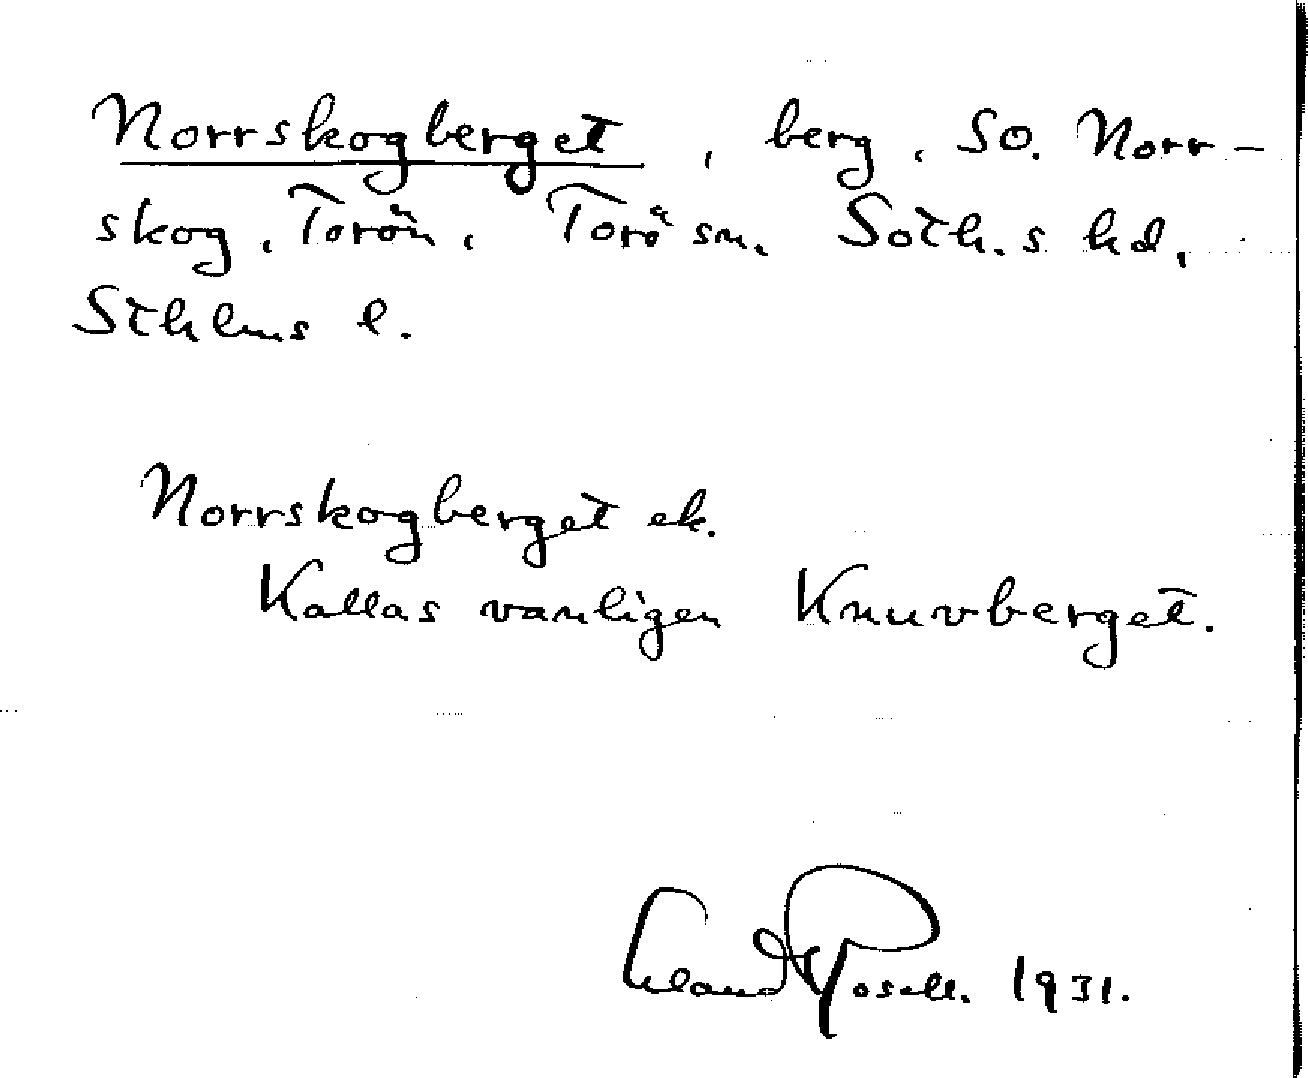 Norrskogberget, berg, SO. Norr-
skog, Torön, Torö sn, Soth.s hd,
Sthlms l.
Norrskogberget ek.
Kallas vanligen Knuvberget.
1931.